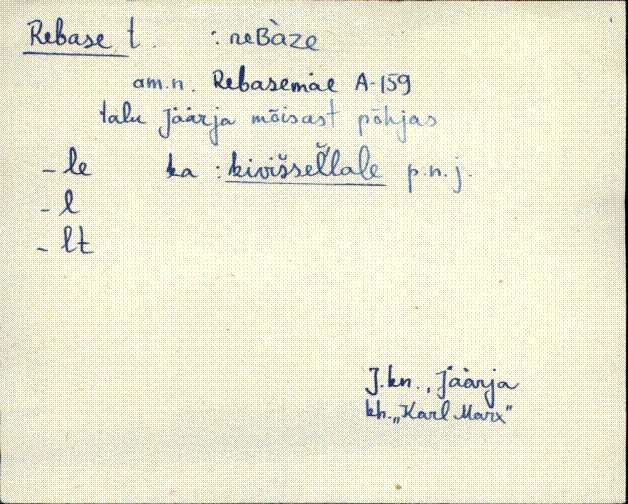 Rebase t. : reBàze
am.n. Rebasemäe A-159
talu Jäärja mõisast põhjas
- le ka : kivišsellale p.n.j.
- l
- lt
J.kn., Jäärja
kh. „Karl Marx"